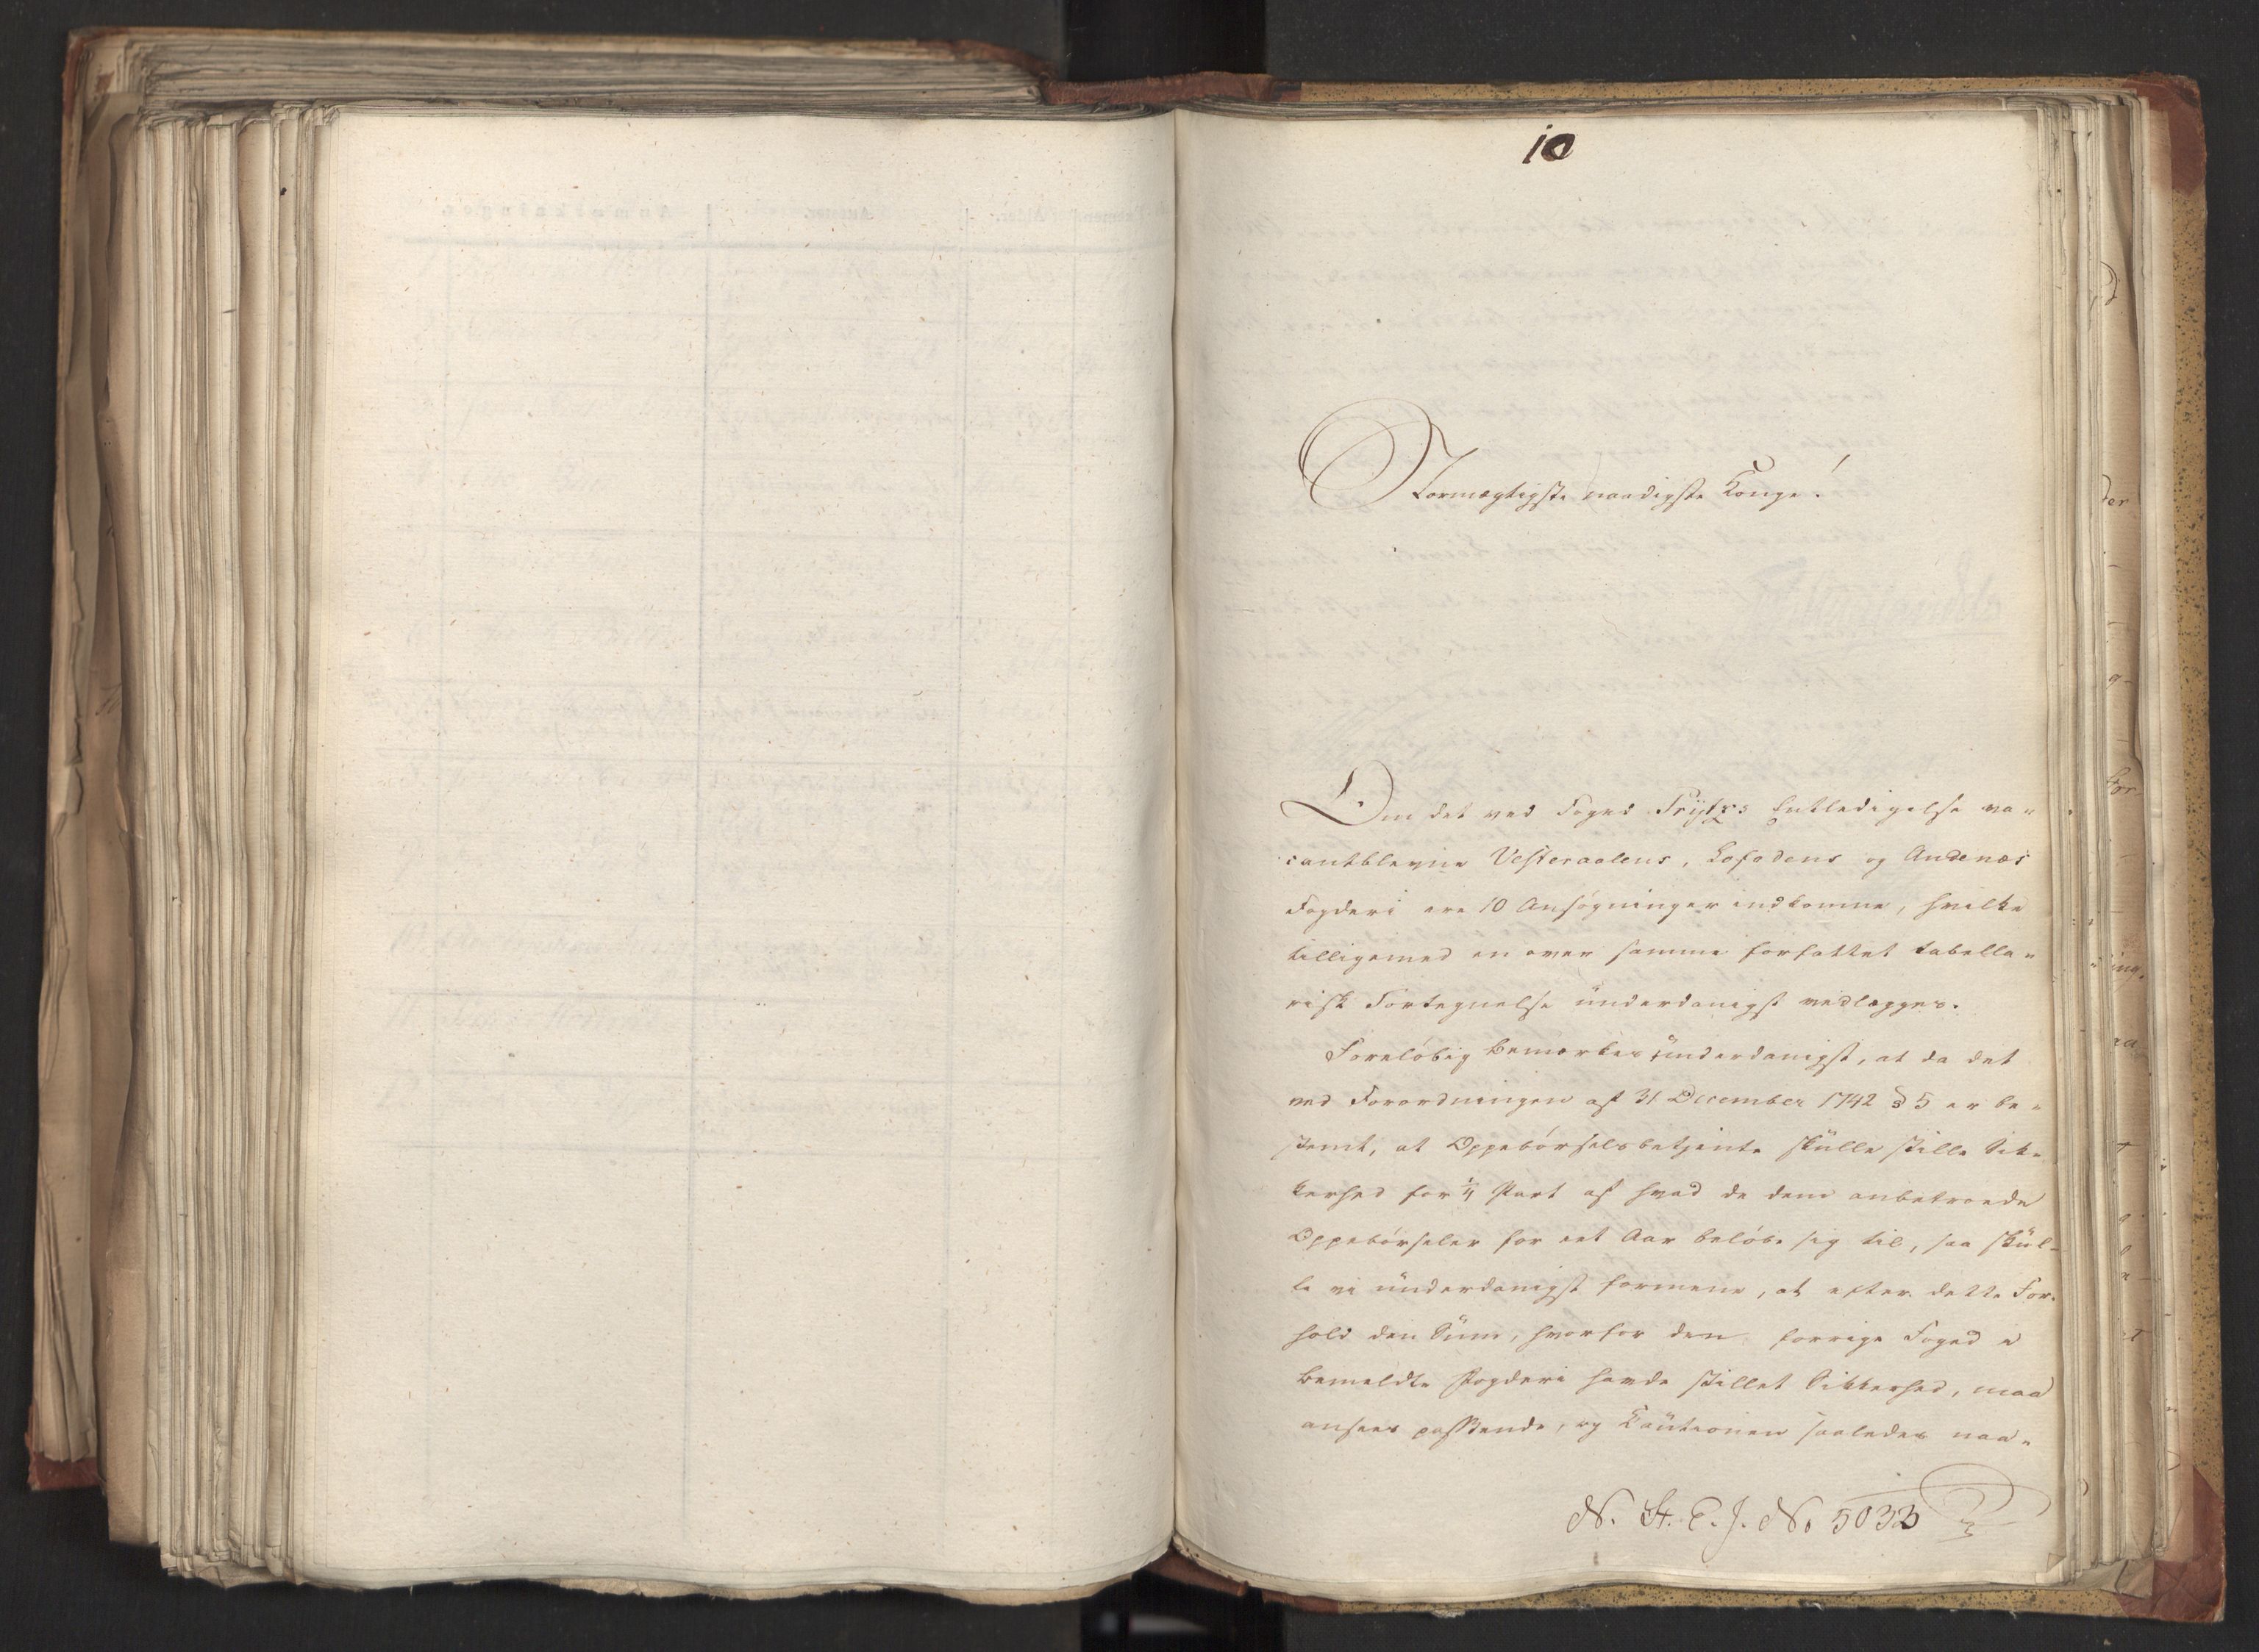 10
Stormægtigste naadigste Konge!
Om det ved Foged Trÿtzs Entledigelse va-
cantblevne Vesteraalens, Lofodens og Andenæs
Fogderi ere 10 Ansøgninger indkomne, hvilke
tilligemed en over samme forfattet tabella-
risk Fortegnelse underdanigst vedlægges.
Foreløbig bemærkes underdanigst, at da det
ved Forordningen af 31 December 1742 § 5 er be-
stemt, at Oppebørselsbetjente skulle stille Sik-
kerhed for 1/4 Part af hvad de dem anbetroede
Oppebørseler for eet Aar beløbe sig til, saa skul-
le vi underdanigst formene, at efter dette For-
hold den Sum, hvorfor den forrige Foged i
bemeldte Fogderi havde stillet Sikkerhed, maa
ansees passende, og Cautionen saaledes naa-
N. St. E. J. No 5033